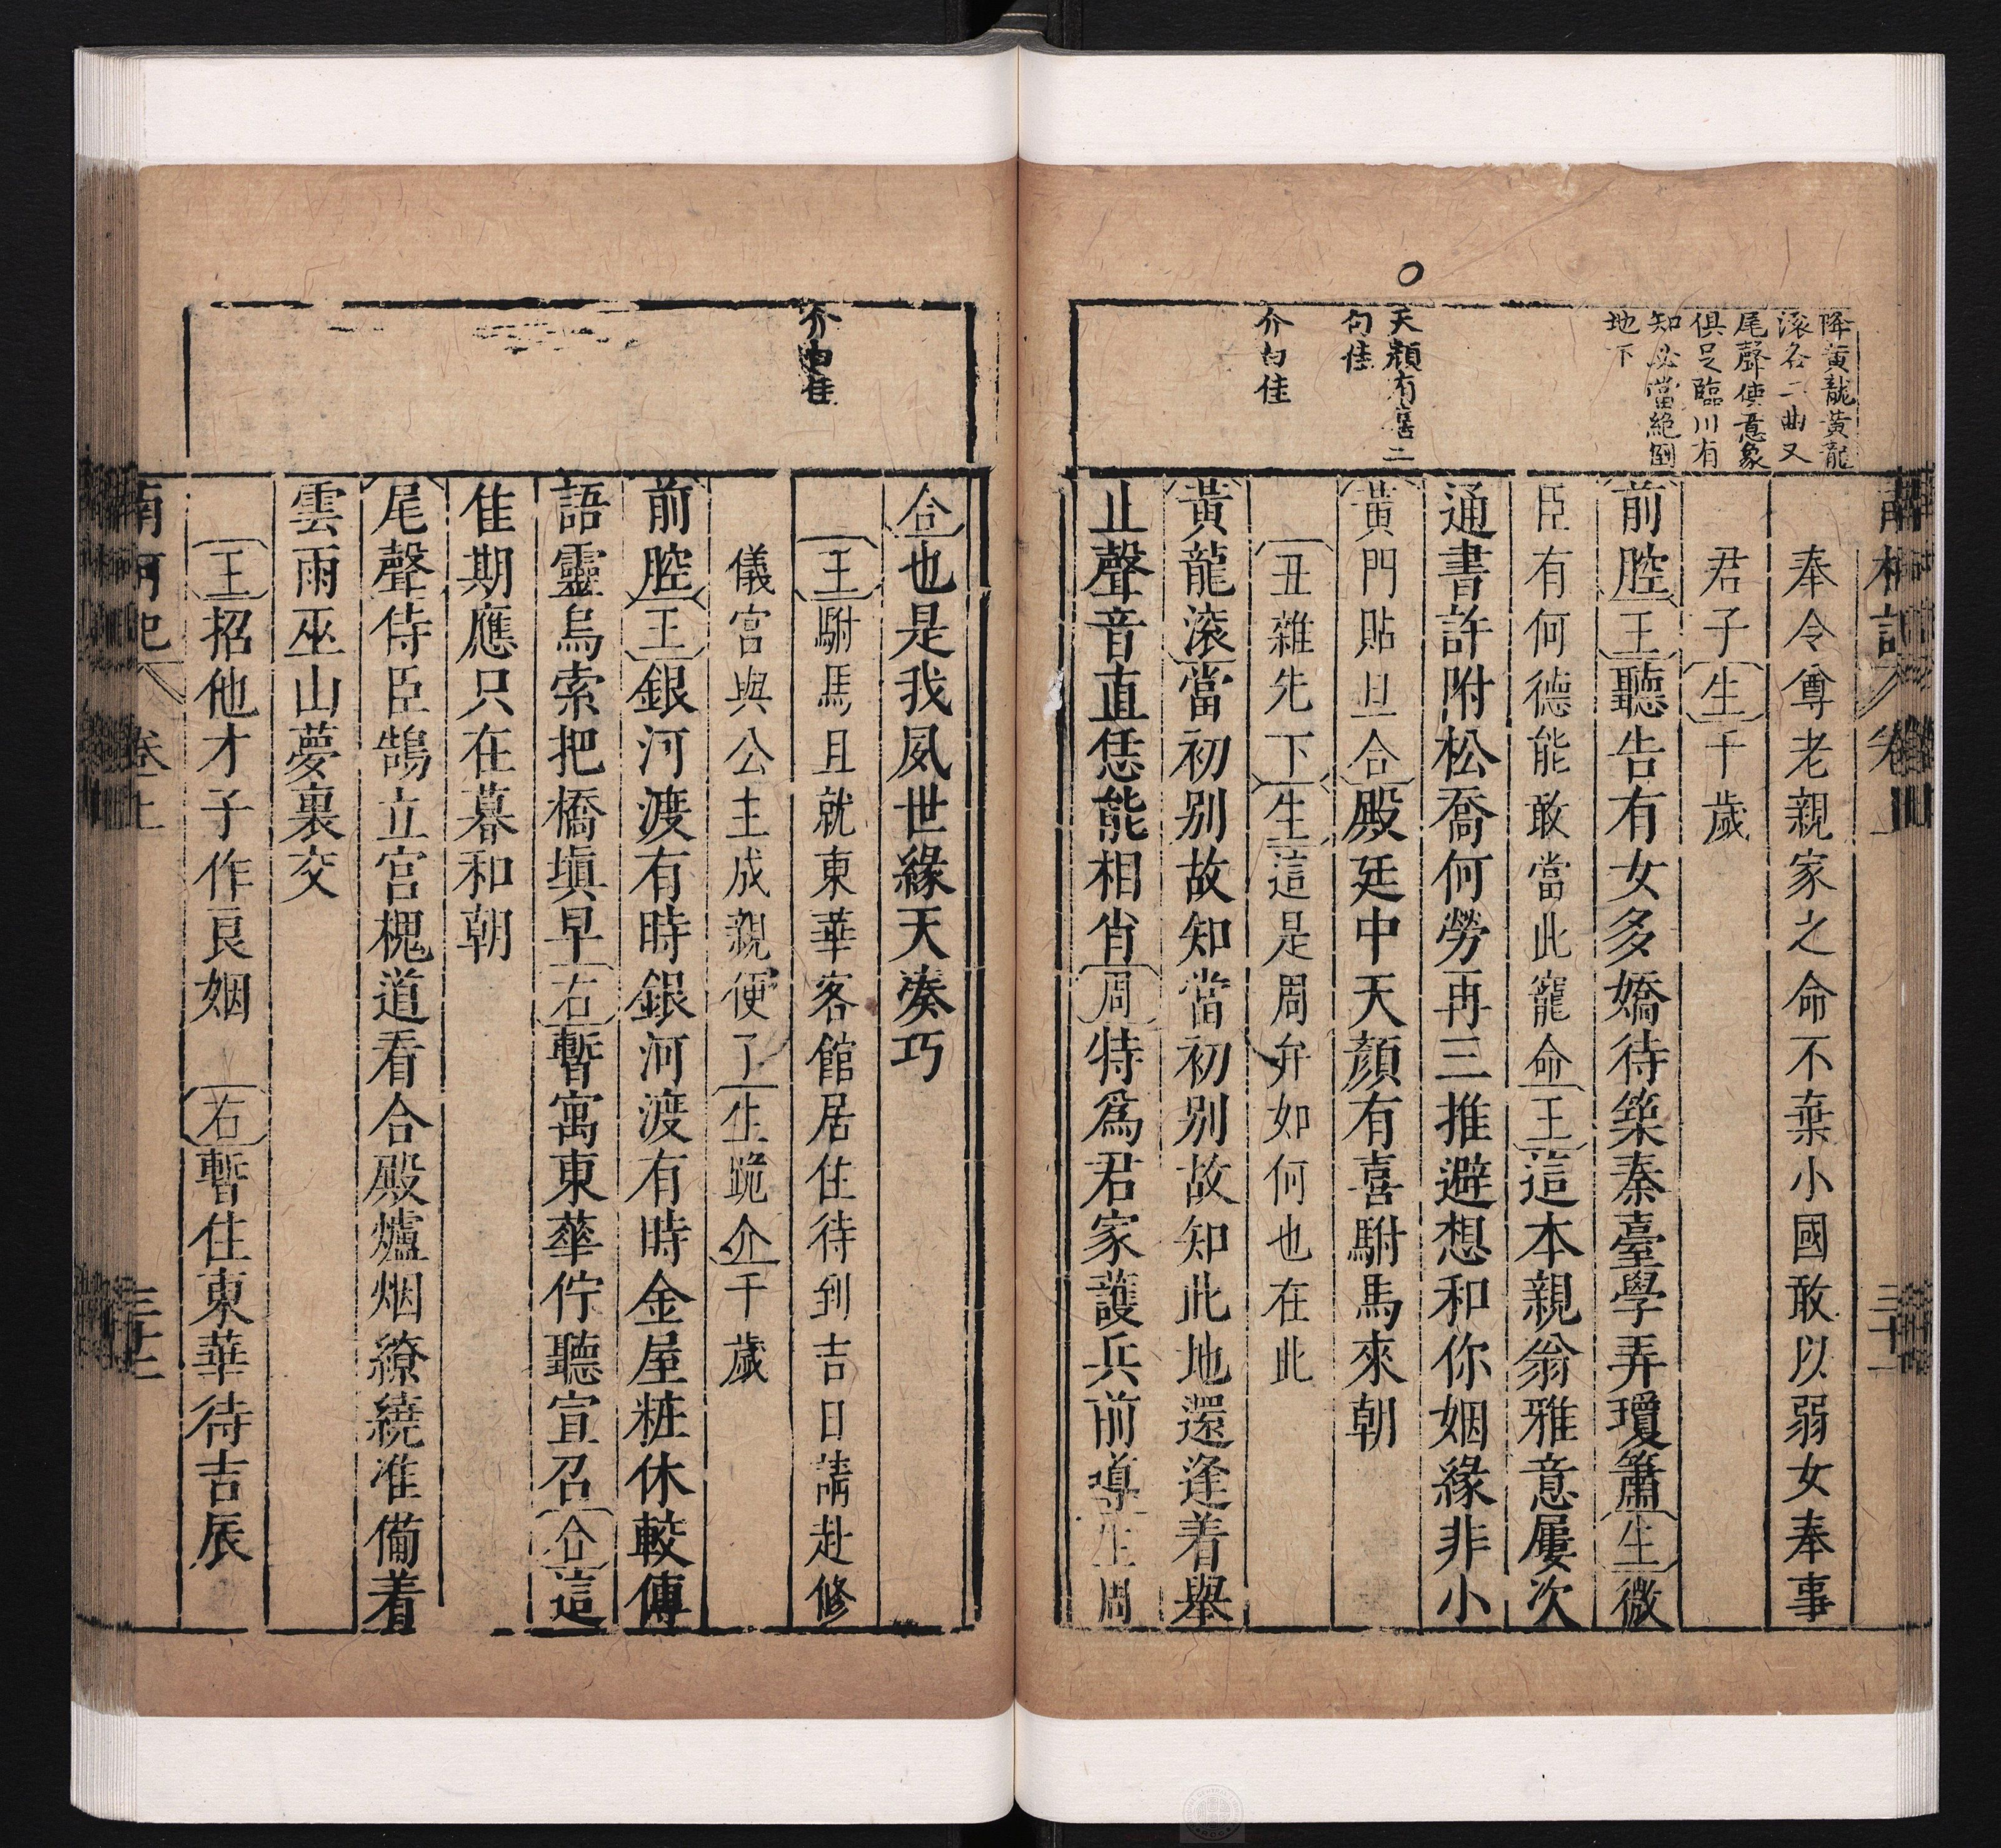 降黃龍黃龍
滚各二曲又
尾聲使意象
俱足臨川有
知必當絕倒
地下
天顏有喜二
句佳
介白佳
奉令尊老親家之命不棄小國敢以弱女奉事
君子生千歲
前腔王聽告有女多嬌待築秦臺學弄瓊簫生微
臣有何德能敢當此寵命王這本親翁雅意屢次
通書許附松喬何勞再三推避想和你姻緣非小
黃門貼旦合殿廷中天顏有喜駙馬來朝
丑雜先下生這是周弁如何也在此
黃龍滚當初別故知當初別故知此地還逢着舉
止聲音直恁能相肖周特為君家護兵前導生周
介白佳
合也是我夙世緣天湊巧
王駙馬且就東華客館居住待到吉日請赴修
儀宮與公主成親便了生跪介千歲
前腔王銀河渡有時銀河渡有時金屋粧休較傳
語靈烏索把橋塡早右暫寓東華佇聽宣召合這
佳期應只在暮和朝
尾聲侍臣鵠立宮槐道看合殿爐烟繚繞准備着
雲雨巫山夢裏交
王招他才子作良姻 右暫住東華待吉辰
南柯記 卷上 三十二